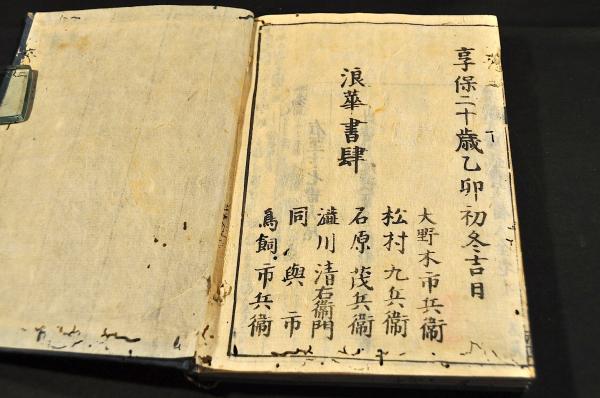 享保二十歳乙卯初冬吉日
浪華書肆
大野木市兵衞
松村九兵衞
石原茂兵衞
瀧川清右衞門
同與市
鳥飼市兵衞